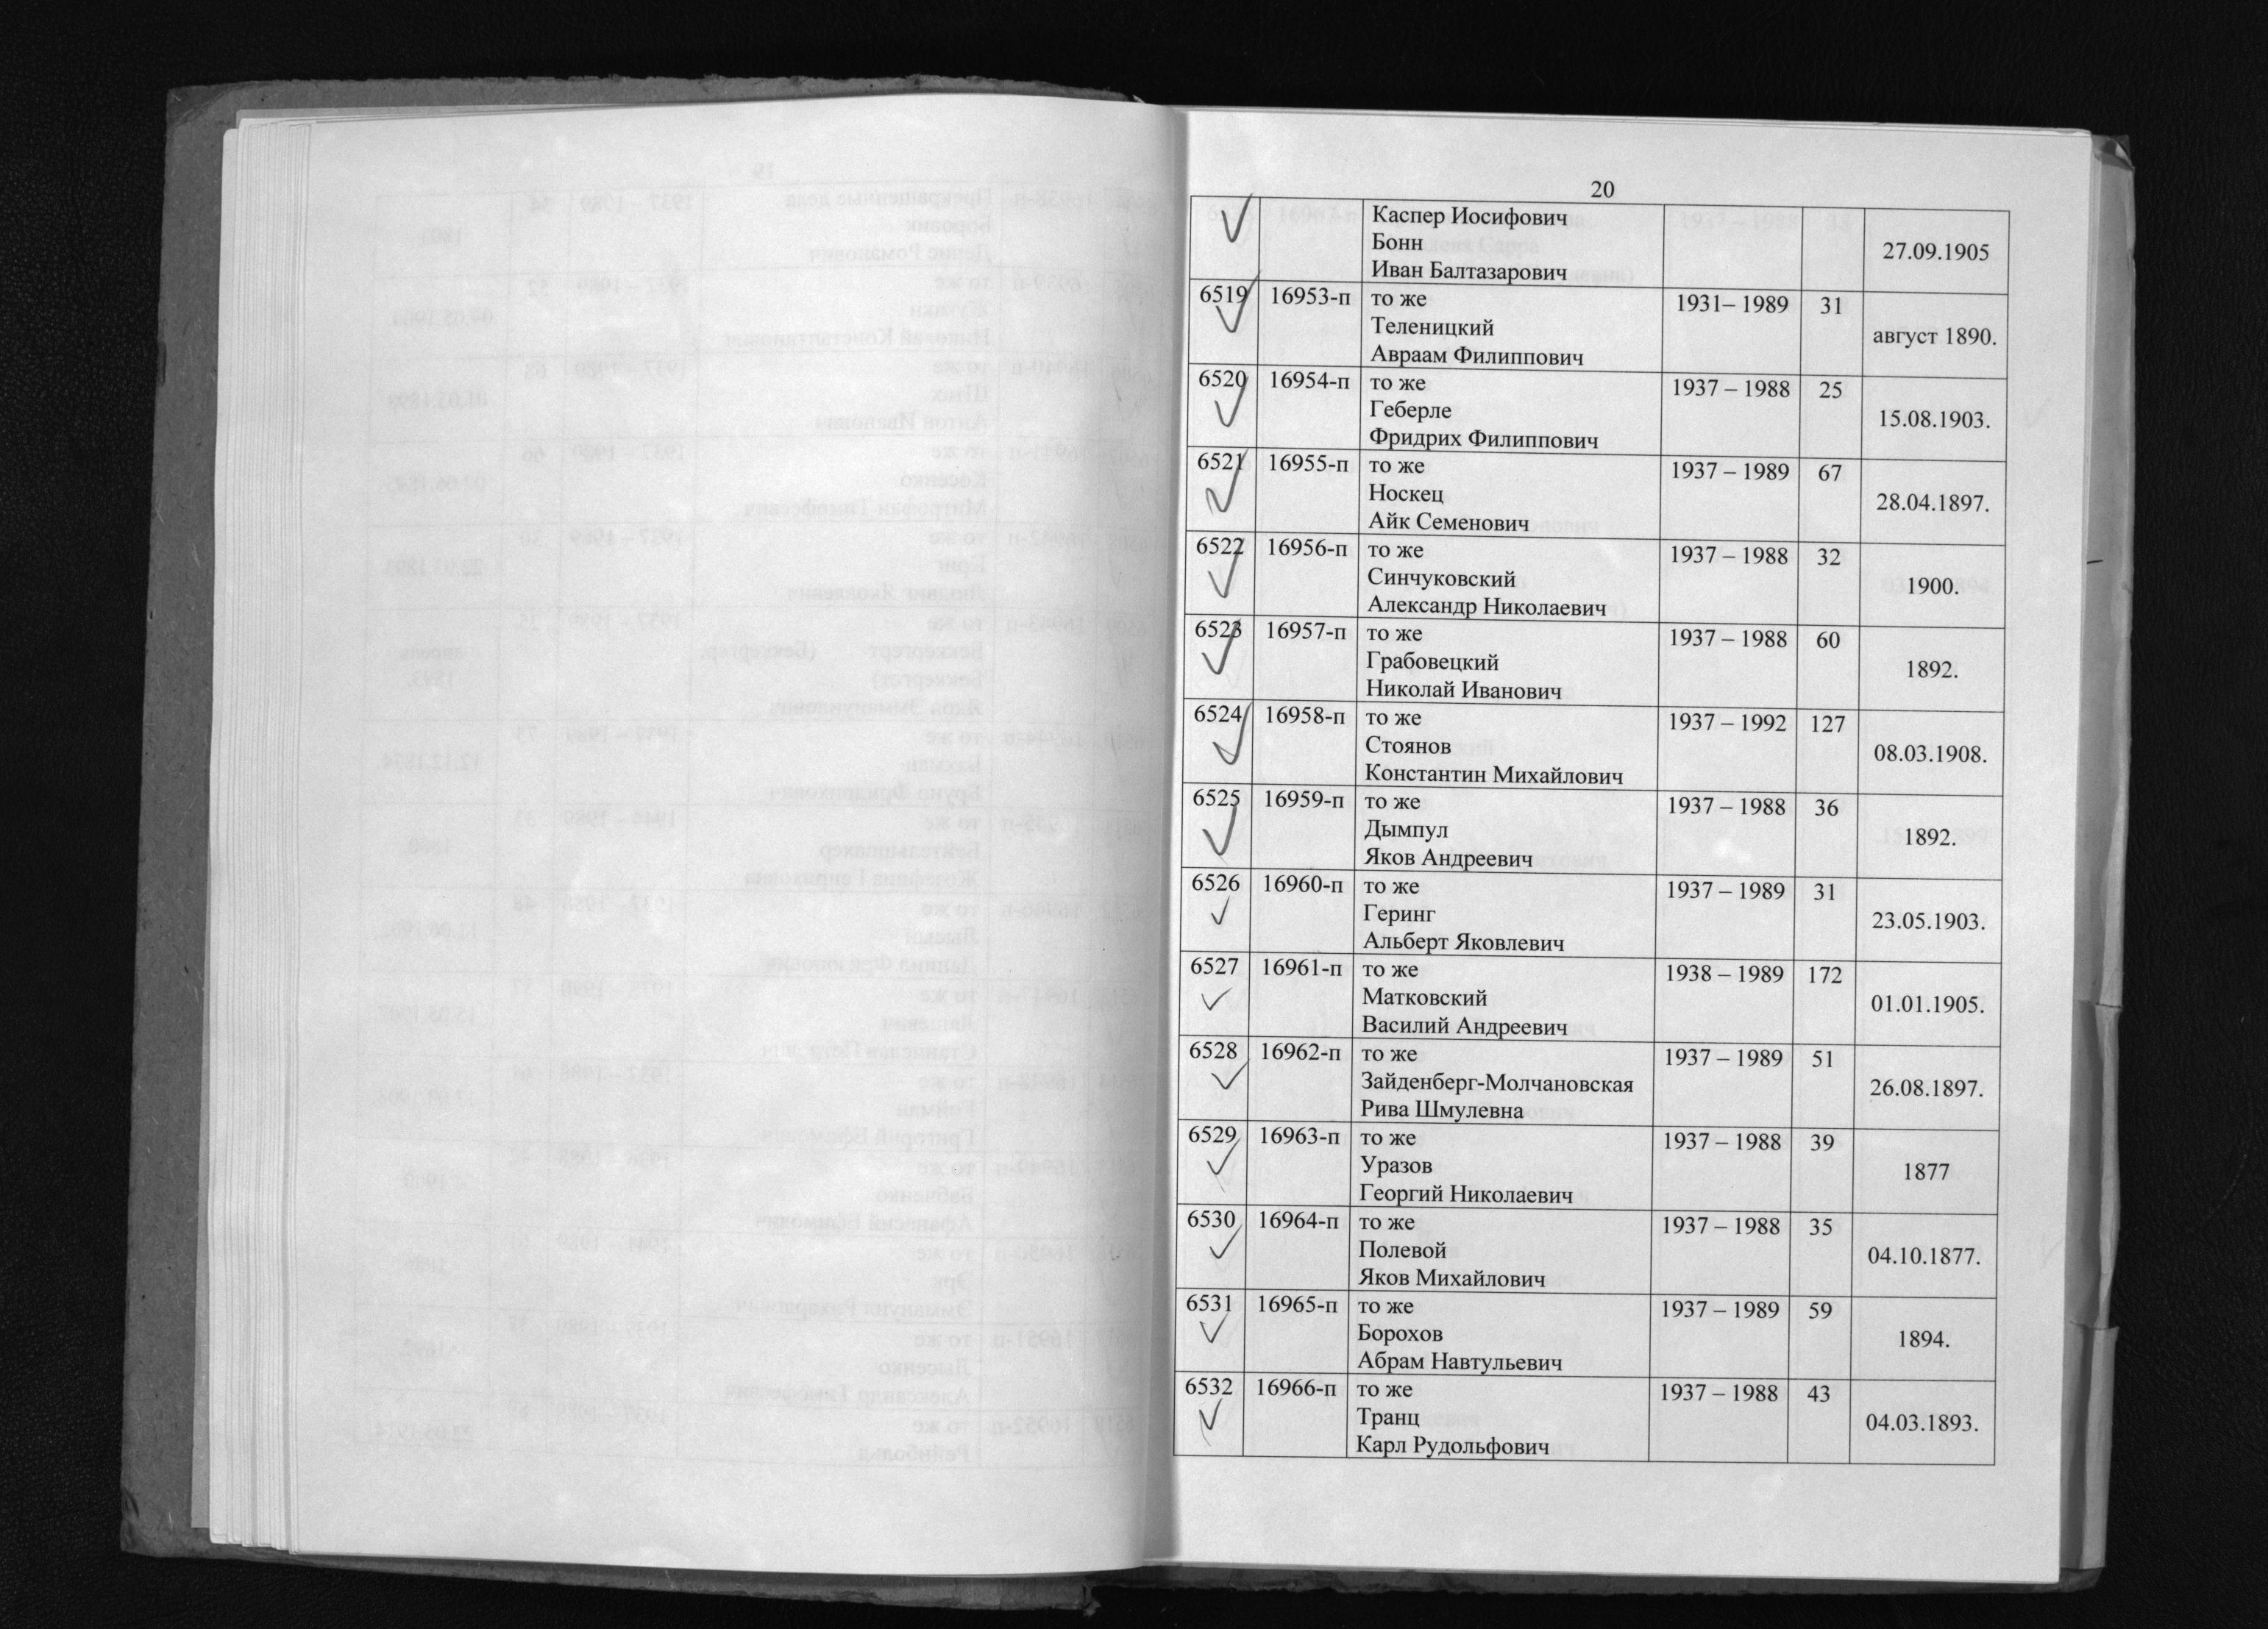 20
Каспер Иосифович
Бонн
Иван Балтазарович 27.09.1905
6519 16953-п то же 1931– 1989 31
Теленицкий
Авраам Филиппович август 1890.
6520 16954-п то же 1937 – 1988 25
Геберле
Фридрих Филиппович 15.08.1903.
6521 16955-п то же 1937 – 1989 67
Носкец
Айк Семенович 28.04.1897.
6522 16956-п то же 1937 – 1988 32
Синчуковский
Александр Николаевич 1900.
6523 16957-п то же 1937 – 1988 60
Грабовецкий
Николай Иванович 1892.
6524 16958-п то же 1937 – 1992 127
Стоянов
Константин Михайлович 08.03.1908.
6525 16959-п то же 1937 – 1988 36
Дымпул
Яков Андреевич 1892.
6526 16960-п то же 1937 – 1989 31
Геринг
Альберт Яковлевич 23.05.1903.
6527 16961-п то же 1938 – 1989 172
Матковский
Василий Андреевич 01.01.1905.
6528 16962-п то же 1937 – 1989 51
Зайденберг-Молчановская
Рива Шмулевна 26.08.1897.
6529 16963-п то же 1937 – 1988 39
Уразов
Георгий Николаевич 1877
6530 16964-п то же 1937 – 1988 35
Полевой
Яков Михайлович 04.10.1877.
6531 16965-п то же 1937 – 1989 59
Борохов
Абрам Навтульевич 1894.
6532 16966-п то же 1937 – 1988 43
Транц
Карл Рудольфович 04.03.1893.